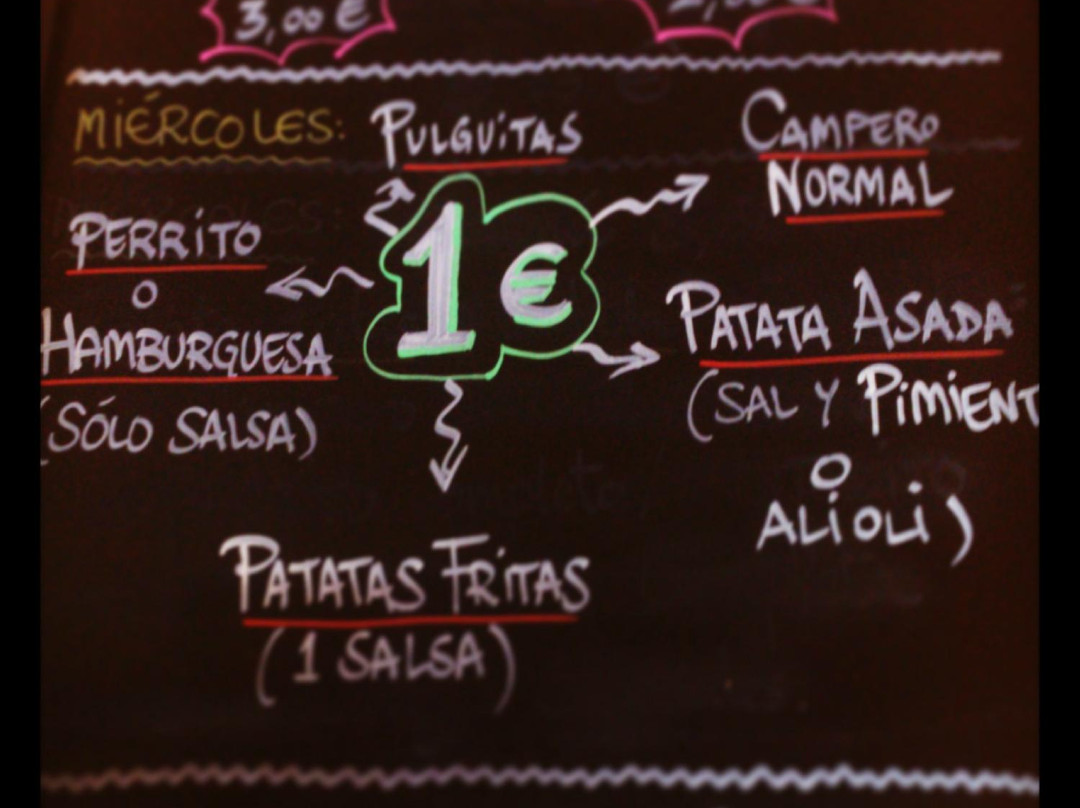 3,00 €
MIÉRCOLES:
PULGUITAS
CAMPERO
NORMAL
1 €
PERRITO
O
HAMBURGUESA
(SÓLO SALSA)
PATATA ASADA
(SAL Y PIMIENT
O
ALIOLI)
PATATAS FRITAS
(1 SALSA)